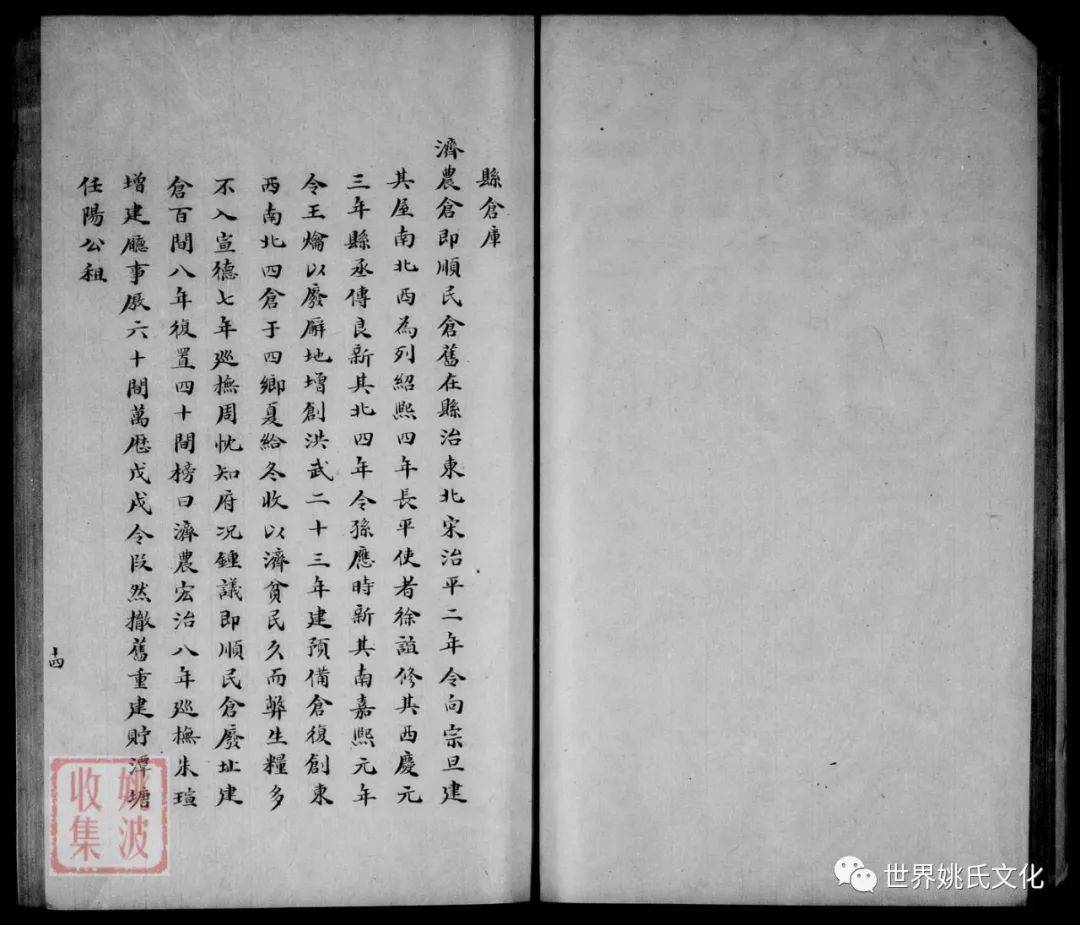 縣倉庫
濟農倉即順民倉舊在縣治東北宋治平二年令向宗旦建
其屋南北西為列紹熙四年長平使者徐誼修其西慶元
三年縣丞傅良新其北四年令孫應時新其南嘉熙元年
令王爚以廢廨地增創洪武二十三年建預備倉復創東
西南北四倉于四鄉夏給冬收以濟貧民久而弊生糧多
不入宣德七年巡撫周忱知府况鍾議即順民倉廢址建
倉百間八年復置四十間榜曰濟農宏治八年巡撫朱瑄
增建廳事厫六十間萬厯戊戌令段然撤舊重建貯潭塘
任陽公租
十四
姚波
收集
世界姚氏文化